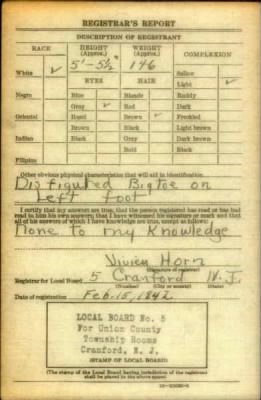 REGISTRAR'S REPORT
DESCRIPTION OF REGISTRANT
RACE HEIGHT (Approx.) WEIGHT (Approx.) COMPLEXION
White ✓ 5'-5½" 146 Sallow
EYES HAIR Light ✓
Negro Blue Blonde Ruddy
Gray ✓ Red Dark
Oriental Hazel Brown ✓ Freckled
Brown Black Light brown
Indian Black Gray Dark brown
Bald Black
Filipino
Other obvious physical characteristics that will aid in identification
Disfigured Big toe on
Left foot
I certify that my answers are true; that the person registered has read or has had
read to him his own answers; that I have witnessed his signature or mark and that
all of his answers of which I have knowledge are true, except as follows:
None to my knowledge
Vivien Horn
(Signature of registrar)
Registrar for Local Board 5 Cranford N.J.
(Number) (City or county) (State)
Date of registration Feb. 15, 1942
LOCAL BOARD No. 5
For Union County
Township Rooms
Cranford, N. J.
(STAMP OF LOCAL BOARD)
(The stamp of the Local Board having jurisdiction of the registrant
shall be placed in the above space.)